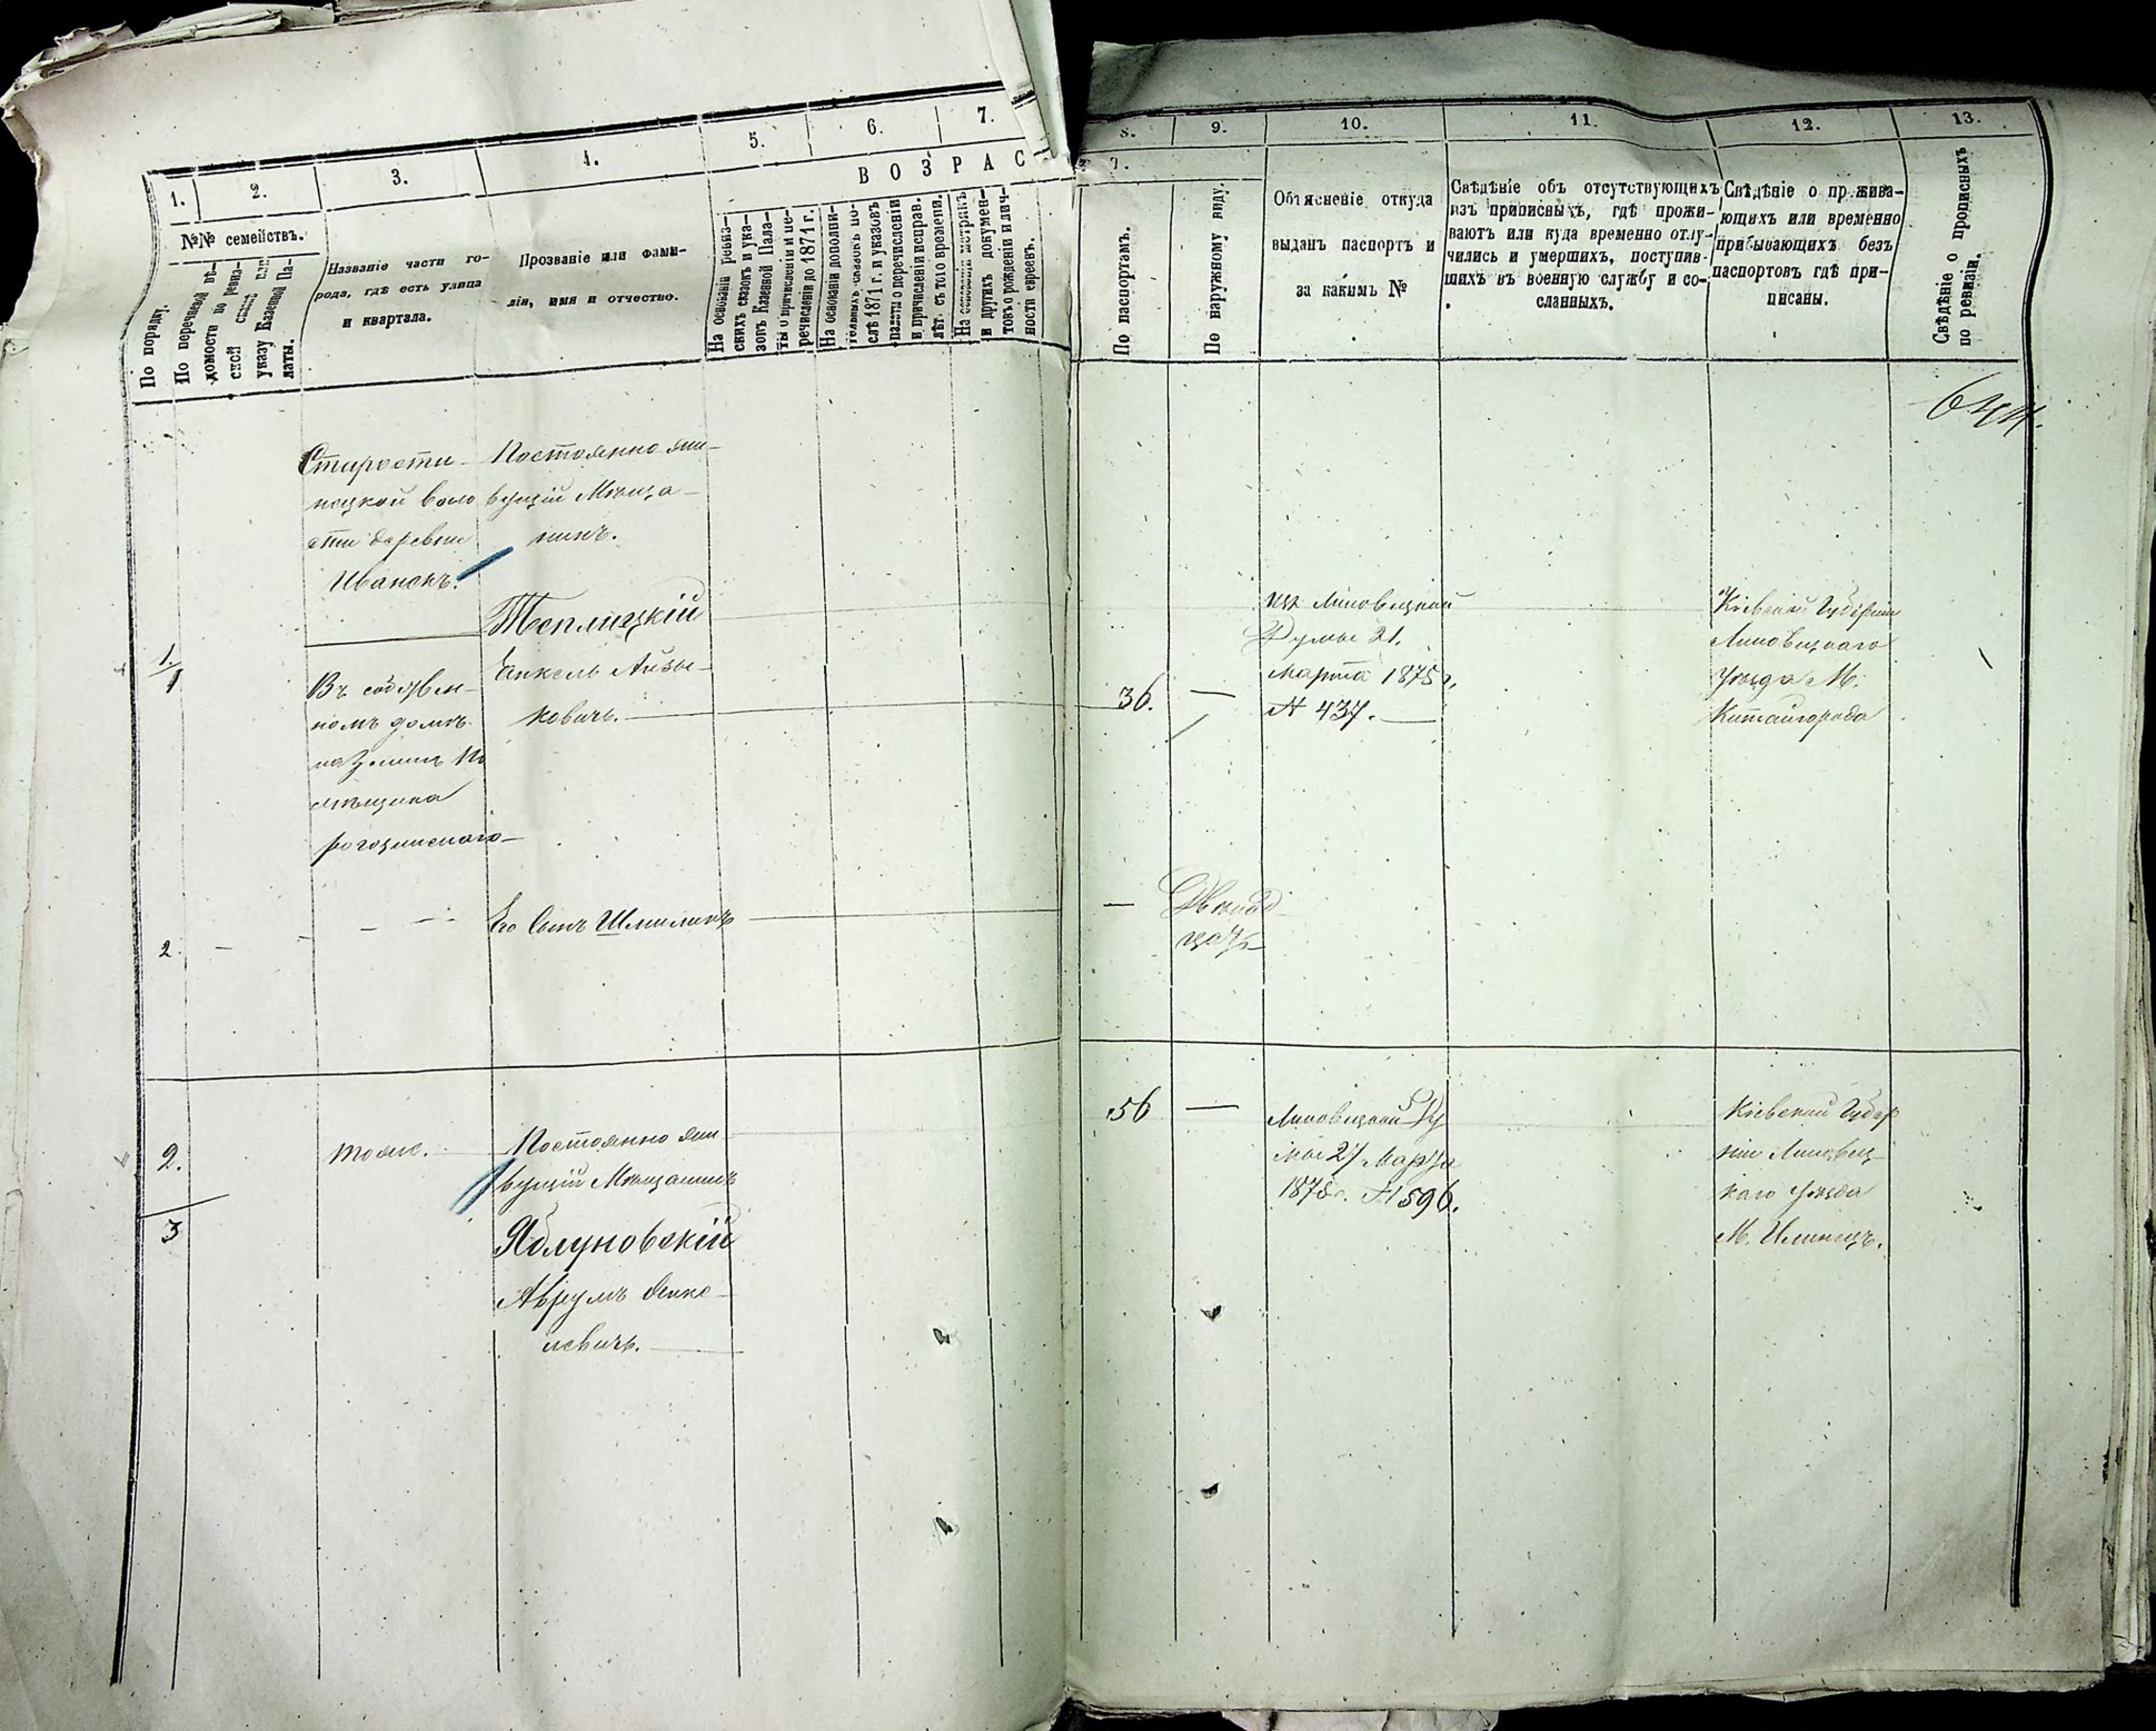 1. 2. 3. 4. 5. 6. 7.
ВОЗРАС
№№ семействъ.
По порядку.
По перечневой вѣ-
домости по ревиз-
ской сказкѣ или
указу Казенной Па-
латы.
Названіе части го-
рода, гдѣ есть улица
и квартала.
Прозваніе или фами-
лія, имя и отчество.
На основаніи ревиз-
скихъ сказокъ и ука-
зовъ Казенной Пала-
ты о причисленіи и пе-
речисленіи до 1871 г.
На основаніи дополни-
тельныхъ сказокъ по-
слѣ 1871 г. и указовъ
палаты о перечисленіи
и причисленіи исправ.
лѣт. съ того времени.
На основаніи метрикъ
и другихъ докумен-
товъ о рожденіи и лич-
ности евреевъ.
Старости-
нецкой воло
сти деревни
Иванскъ.
Постоянно жи-
вущій Мѣща-
нинъ.
Теплицкій
1.
1
Янкель Айзы-
ковичъ.
Въ собствен-
номъ домѣ
на Землѣ По
мѣщика
2. - - - -
Его Сынъ Шмиликъ
2.
3
тоже.
Постоянно жи
вущій Мѣщанинъ
Яблуновскій
Аврумъ Янке-
левичъ.
8. 9. 10. 11. 12. 13.
Т Ъ.
По паспортамъ.
По наружному виду.
Объясненіе откуда
выданъ паспортъ и
за какимъ №
Свѣдѣніе объ отсутствующихъ
изъ приписныхъ, гдѣ прожи-
ваютъ или куда временно отлу-
чились и умершихъ, поступив-
шихъ въ военную службу и со-
сланныхъ.
Свѣдѣніе о прожива-
ющихъ или временно
прибывающихъ безъ
паспортовъ гдѣ при-
писаны.
Свѣдѣніе о прописныхъ
по ревизіи.
36. —
изъ Липовецкой
Думы 21.
Марта 1875 г.
№ 437.
Кіевской Губерніи
Липовецкаго
Уѣзда М.
Китайгорода
— Двѣнад
цать
56 —
Липовецкой Ду
мы 27 Марта
1875 г. № 596.
Кіевской Губер
ніи Липовец-
каго Уѣзда
М. Илинецъ.